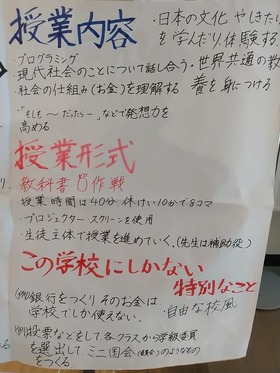 授業内容
・プログラミング
・現代社会のことについて話し合う
・社会の仕組み(お金)を理解する
・「もしも〜だったら…」などで発想力を
高める
・日本の文化 やしきたり
を学んだり、体験する
・世界共通の教
養を身につける
授業形式
教科書0作戦
授業時間は40分 休けい10分で8コマ
・プロジェクター スクリーンを使用
・生徒主体で授業を進めていく。(先生は補助役)
この学校にしかない
特別なこと
(例)銀行をつくり そのお金は
学校でしか使えない.
・自由な校風
(例)投票などをして各クラスから学級委員
を選出して ミニ国会 のようなもの
をつくる